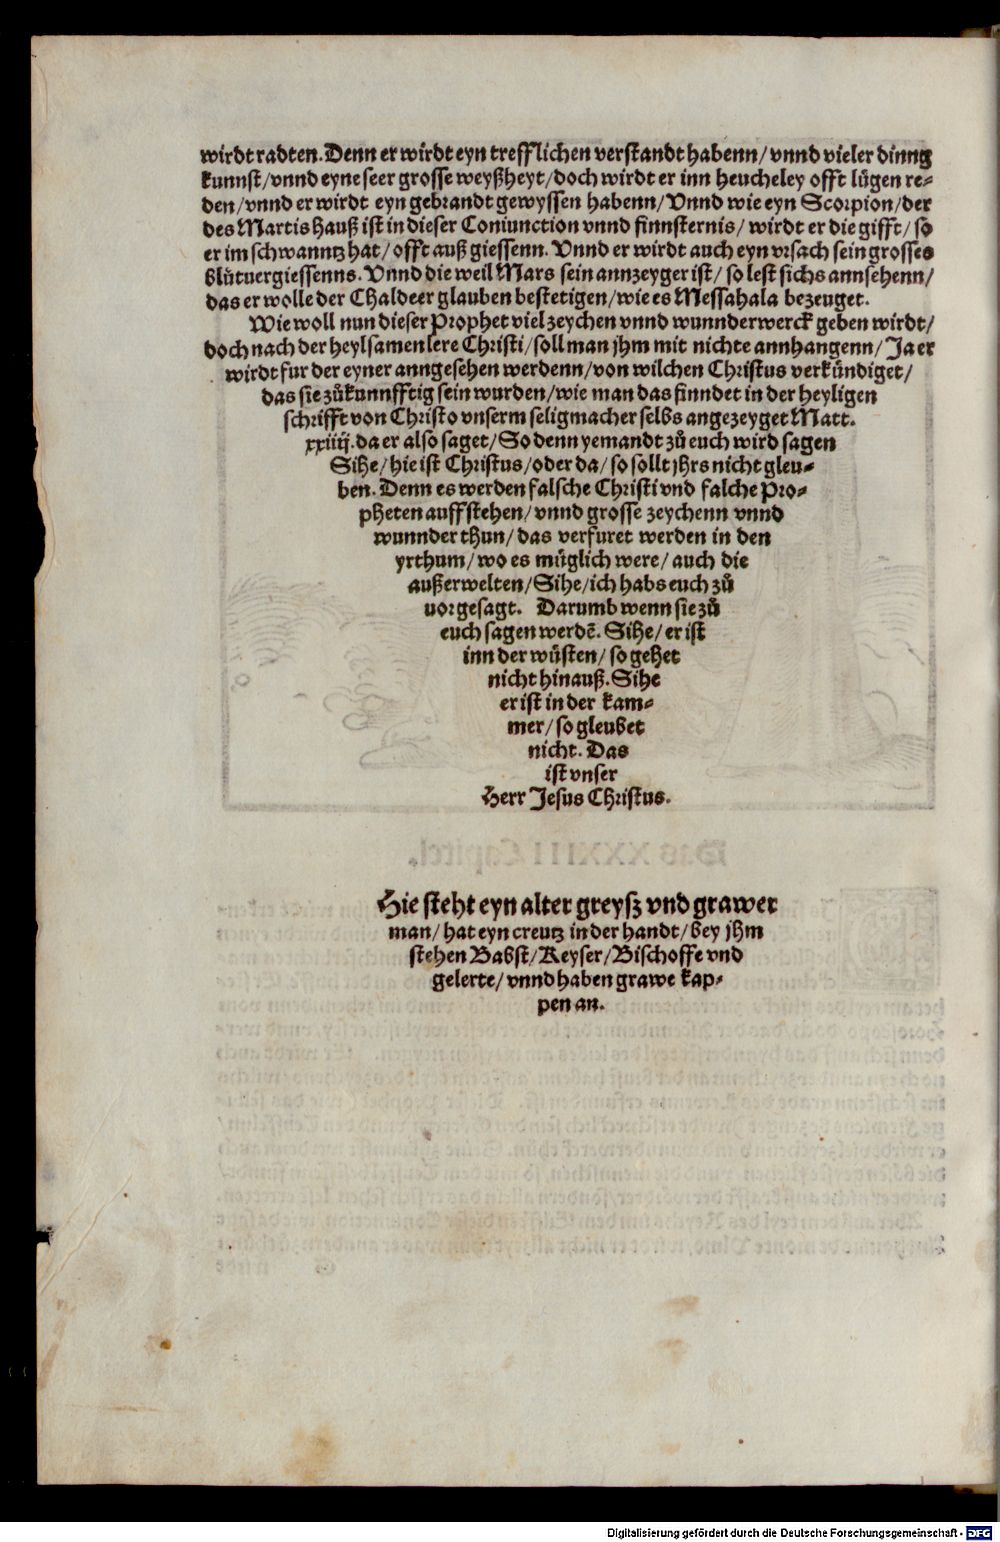 wirdt radten. Denn er wirdt eyn trefflichen verstandt habenn/ vnnd vieler dinng
kunnst/ vnnd eyne seer grosse weyßheyt/ doch wirdt er inn heucheley offt lůgen re-
den/ vnnd er wirdt eyn gebrandt gewyssen habenn/ Vnnd wie eyn Scorpion/ der
des Martis hauß ist in dieser Coniunction vnnd finnsternis/ wirdt er die gifft/ so
er im schwanntz hat/ offt auß giessenn. Vnnd er wirdt auch eyn vrsach sein grosses
Blůtuergiessenns. Vnnd die weil Mars sein annzeyger ist/ so lest sichs annsehenn/
das er wolle der Chaldeer glauben bestetigen/ wie es Messahala bezeuget.
Wie woll nun dieser Prophet viel zeychen vnnd wunnderwerck geben wirdt/
doch nach der heylsamen lere Christi/ soll man jhm mit nichte annhangenn/ Ja er
wirdt fur der eyner anngesehen werdenn/ von wilchen Christus verkůndiget/
das sie zůkunnfftig sein wurden/ wie man das finndet in der heyligen
schrifft von Christo vnserm seligmacher selbs angezeyget Matt.
xxiiij. da er also saget/ So denn yemandt zů euch wird sagen
Sihe/ hie ist Christus/ oder da/ so sollt jhrs nicht gleu-
ben. Denn es werden falsche Christi vnd falche Pro-
pheten auffstehen/ vnnd grosse zeychenn vnnd
wunnder thun/ das verfuret werden in den
yrthum/ wo es můglich were/ auch die
außerwelten/ Sihe/ ich habs euch zů
uorgesagt. Darumb wenn sie zů
euch sagen werdē. Sihe/ er ist
inn der wůsten/ so gehet
nicht hinauß. Sihe
er ist in der kam-
mer/ so gleubet
nicht. Das
ist vnser
Herr Jesus Christus.
Hie steht eyn alter greysz vnd grawer
man/ hat eyn creutz in der handt/ bey jhm
stehen Babst/ Keyser/ Bischoffe vnd
gelerte/ vnnd haben grawe kap-
pen an.
Digitalisierung gefördert durch die Deutsche Forschungsgemeinschaft - DFG